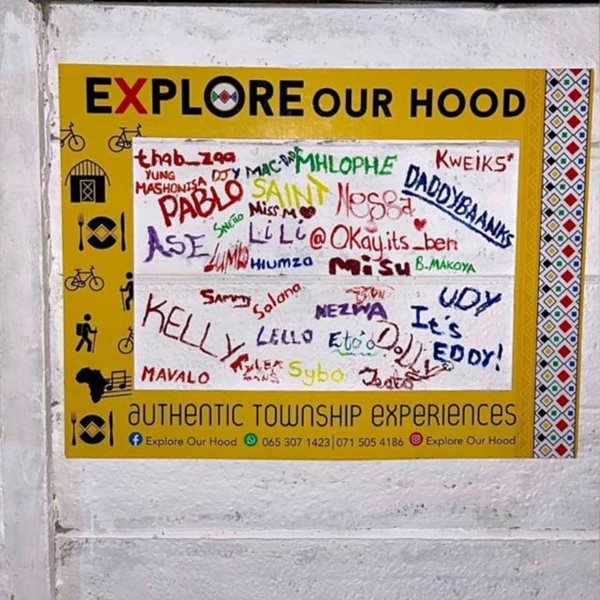 EXPLORE OUR HOOD
thab_zaa
YUNG
MASHONISA
DJY
MAC-DADA
MHLOPHE
KWEIKS*
PABLO
SAINT
Nessa
DADDYBAANKS
Miss M
ASE
LiLi
@OKay.its_ben
LUMKO
HLUMZA
MiSU
B.MAKOYA
SAMMY
Solana
NEZWA
UDY
KELLY
LELLO
Eto'o
Dolly
It's
EDDY!
MAVALO
Sybo
AUTHENTIC TOWNSHIP EXPERIENCES
Explore Our Hood 065 307 1423 | 071 505 4186 Explore Our Hood